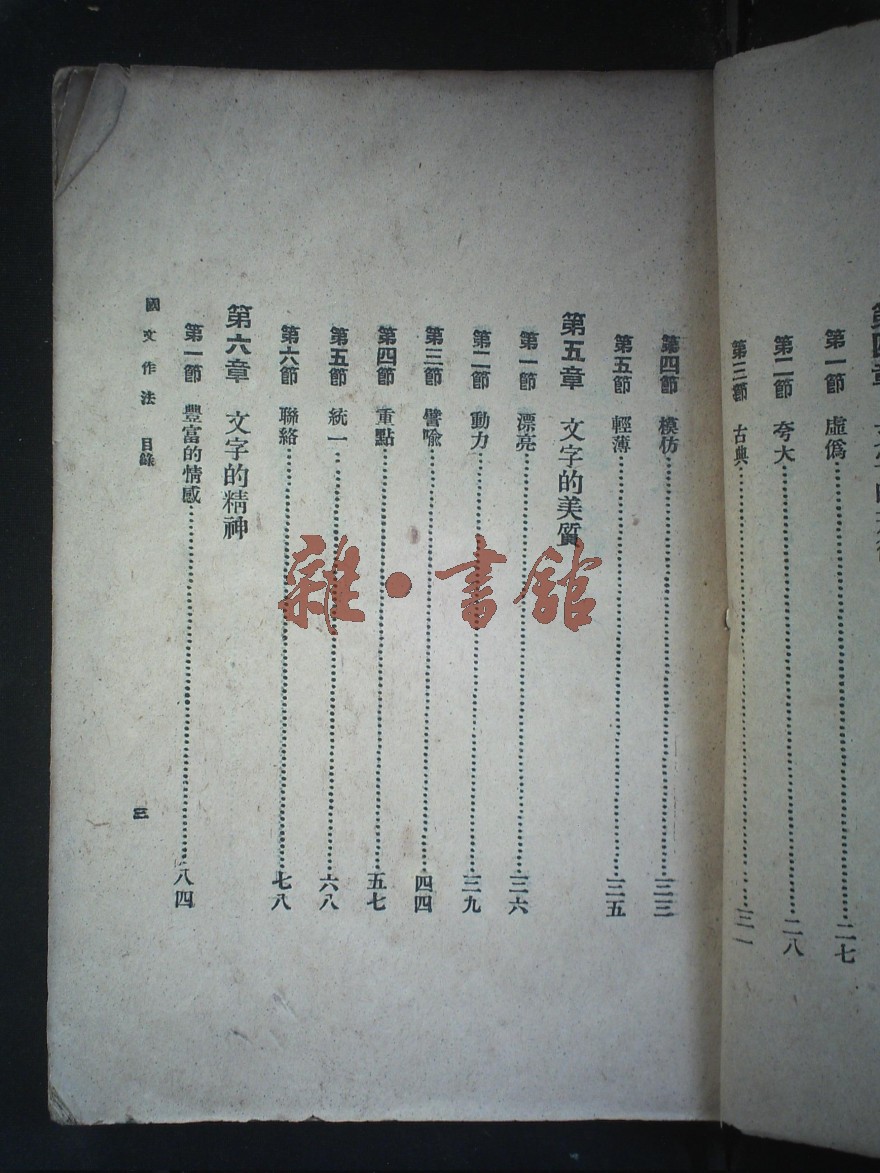 第四章
第一節 虛僞 二七
第二節 夸大 二八
第三節 古典 三一
第四節 模仿 三三
第五節 輕薄 三五
第五章 文字的美質
第一節 漂亮 三六
第二節 動力 三九
第三節 譬喻 四四
第四節 重點 五七
第五節 統一 六八
第六節 聯絡 七八
第六章 文字的精神
第一節 豐富的情感 八四
國文作法 目錄
三
雜·書館